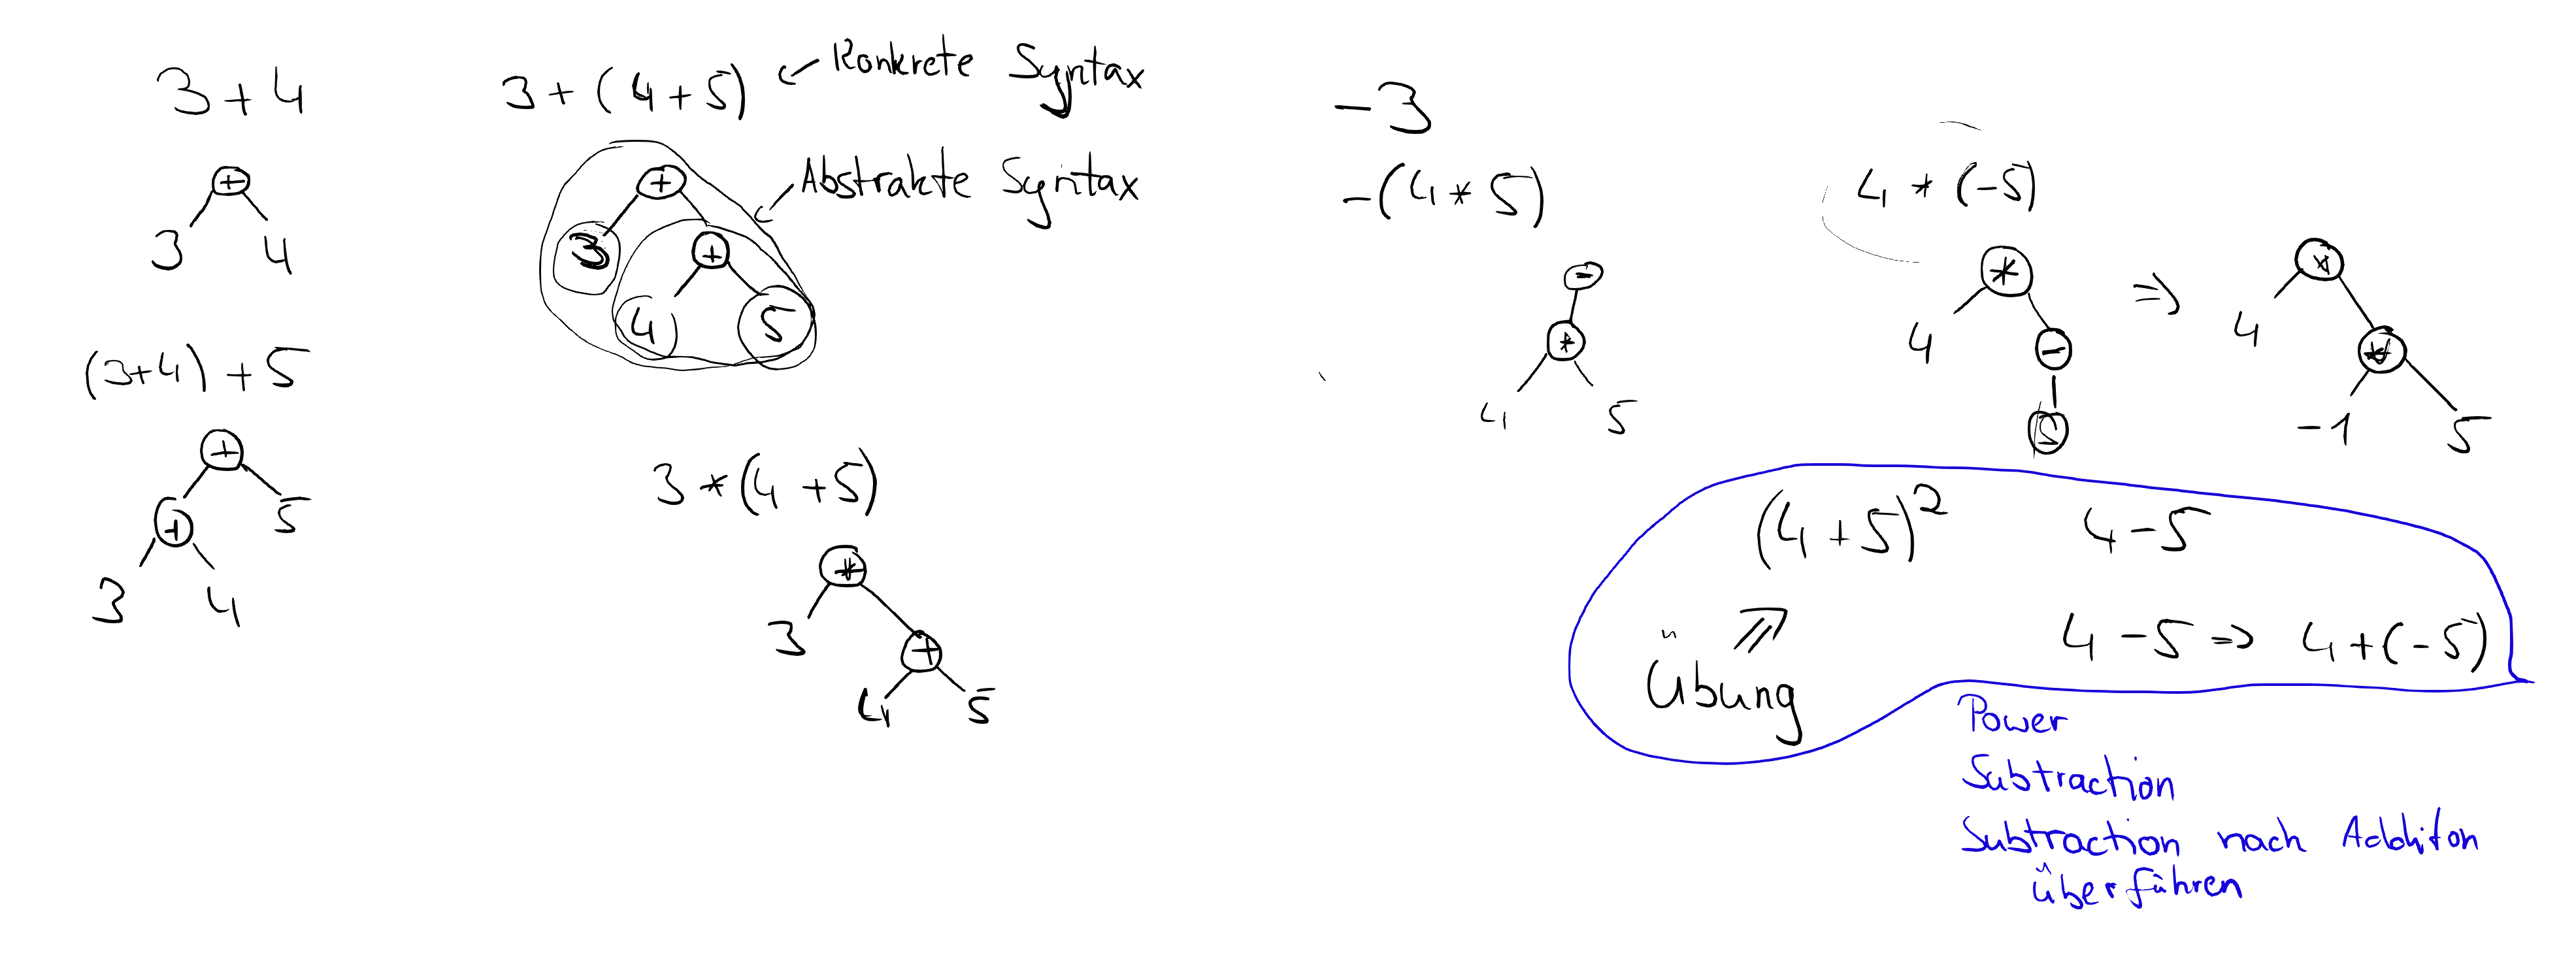 3 + 4
+
3 4
(3+4) + 5
+
+ 5
3 4
3 + (4 + 5) Konkrete Syntax
Abstrakte Syntax
+
3 +
4 5
3 * (4 + 5)
*
3 +
4 5
-3
-(4 * 5)
-
*
4 5
4 * (-5)
*
4 -
5
⇒
*
4 *
-1 5
(4 + 5)²
4 - 5
Übung
4 - 5 ⇒ 4 + (-5)
Power
Subtraction
Subtraction nach Additon
überführen